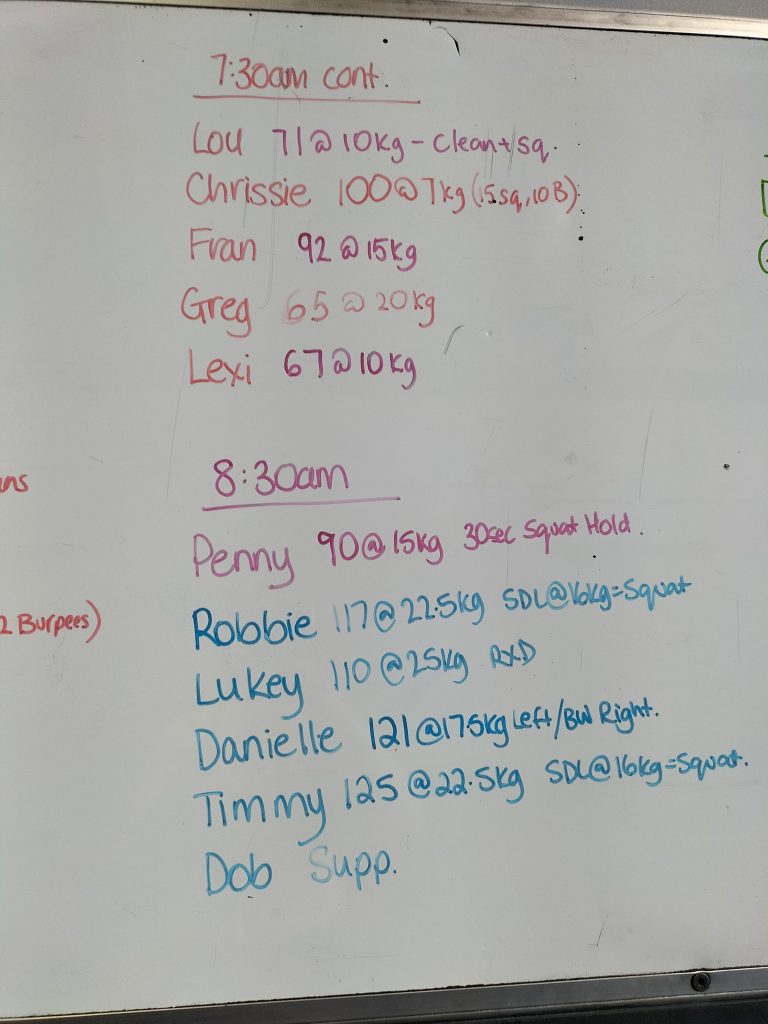 7:30am cont.
Lou 71@10kg - Clean+Sq.
Chrissie 100@7kg (15sq, 10B)
Fran 92@15kg
Greg 65@20kg
Lexi 67@10kg
8:30am
Penny 90@15kg 30sec Squat Hold.
Robbie 117@22.5kg SDL@16kg=Squat
2 Burpees)
Lukey 110@25kg RXD
Danielle 121@17.5kg Left/BW Right.
Timmy 125@22.5kg SDL@16kg=Squat.
Dob Supp.